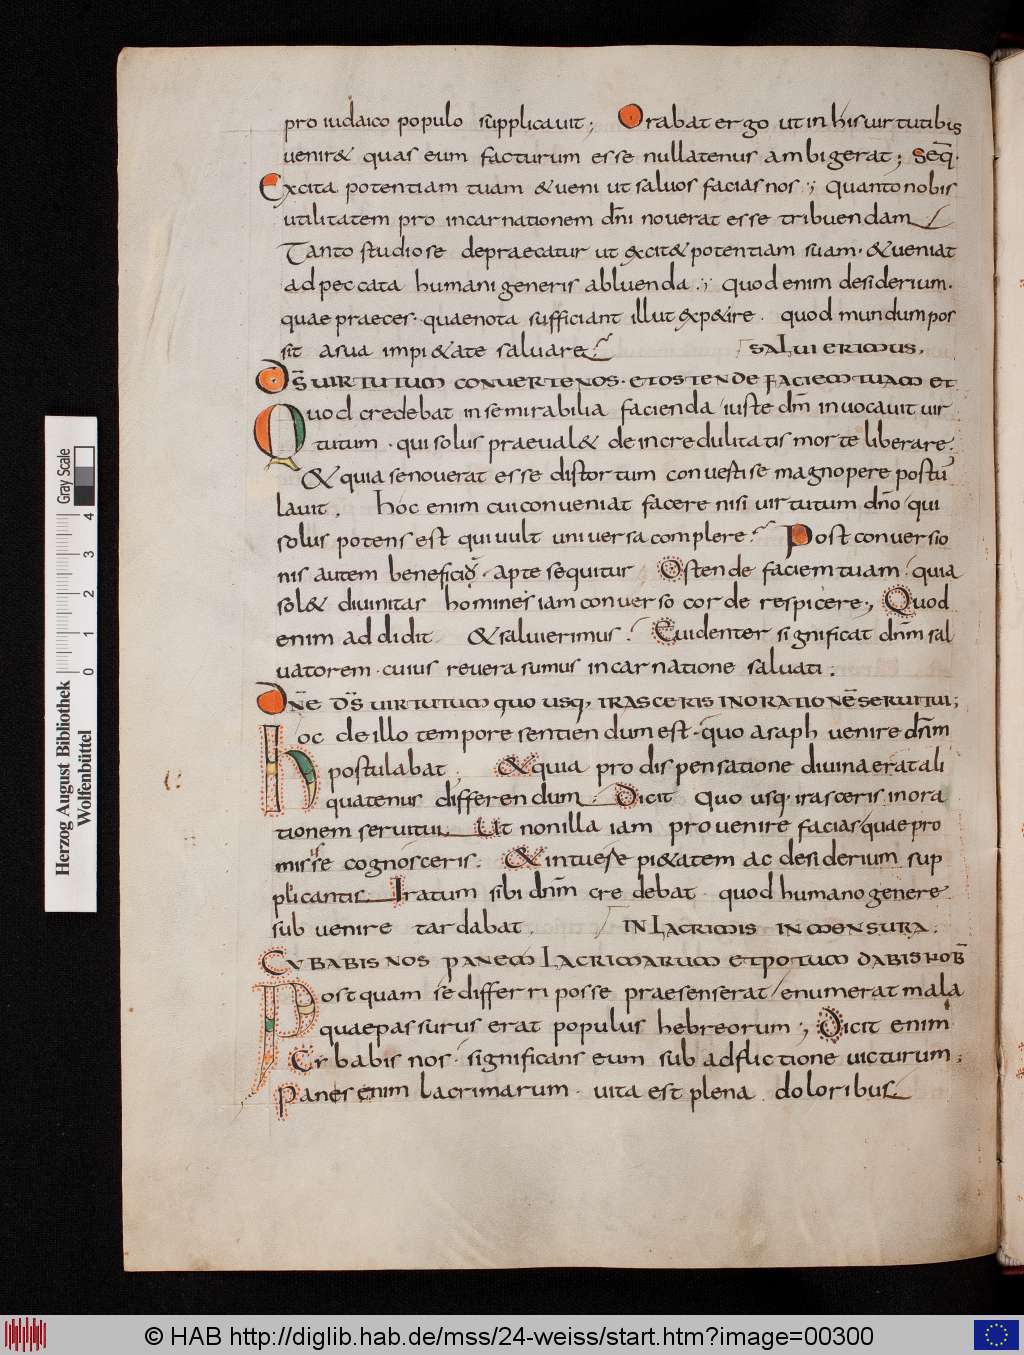 pro iudaico populo supplicauit; Orabat ergo ut in his uirtutibus
uenir& quas eum facturum esse nullatenus ambigerat; Seq̄.
Excita potentiam tuam &ueni ut saluos facias nos; quanto nobis
utilitatem pro incarnationem dn̄i nouerat esse tribuendam
Tanto studiose depraecatur ut excit& potentiam suam. &ueniat
ad peccata humani generis abluenda; quod enim desiderium.
quae praeces. quae nota sufficiant illut exp&ire. quod mundum pos
sit a sua impi&ate saluare
SALUI ERIMUS.
D̄S UIRTUTUM CONUERTE NOS. ET OSTENDE FACIEM TUAM ET
Quod credebat in se mirabilia facienda iuste dm̄ inuocauit uir
tutum. qui solus praeual& de incredulitatis morte liberare.
& quia se nouerat esse distortum conuesti se magnopere postu
lauit. hoc enim cui conueniat facere nisi uirtutum dn̄o qui
solus potens est qui uult uniuersa complere. Post conuersio
nis autem beneficiū. apte sequitur Ostende faciem tuam. quia
sol& diuinitas homines iam conuerso corde respicere; Quod
enim addidit & salui erimus. Euidenter significat dn̄m sal
uatorem. cuius reuera sumus incarnatione saluati.
DN̄E D̄S UIRTUTUM QUO USQ, IRASCERIS IN ORATIONĒ SERUI TUI;
hoc de illo tempore sentiendum est. quo asaph uenire dn̄m
postulabat. & quia pro dispensatione diuina erat ali
quatenus differendum. Dicit Quo usq. irasceris in ora
tionem serui tui. Ut non illa iam prouenire facias quae pro
misisse cognosceris. & intuere pi&atem ac desiderium sup
plicantis. Iratum sibi dn̄m credebat quod humano genere
subuenire tardabat.
IN LACRIMIS IN MENSURA.
CYBABIS NOS PANEM LACRIMARUM ET POTUM DABIS NOB̄
Postquam se differri posse praesenserat enumerat mala
quae passurus erat populus hebreorum; Dicit enim
Cybabis nos. significans eum sub adflictione uicturum;
Panes enim lacrimarum. uita est plena doloribus
Gray Scale
0 1 2 3 4
Herzog August Bibliothek
Wolfenbüttel
© HAB http://diglib.hab.de/mss/24-weiss/start.htm?image=00300